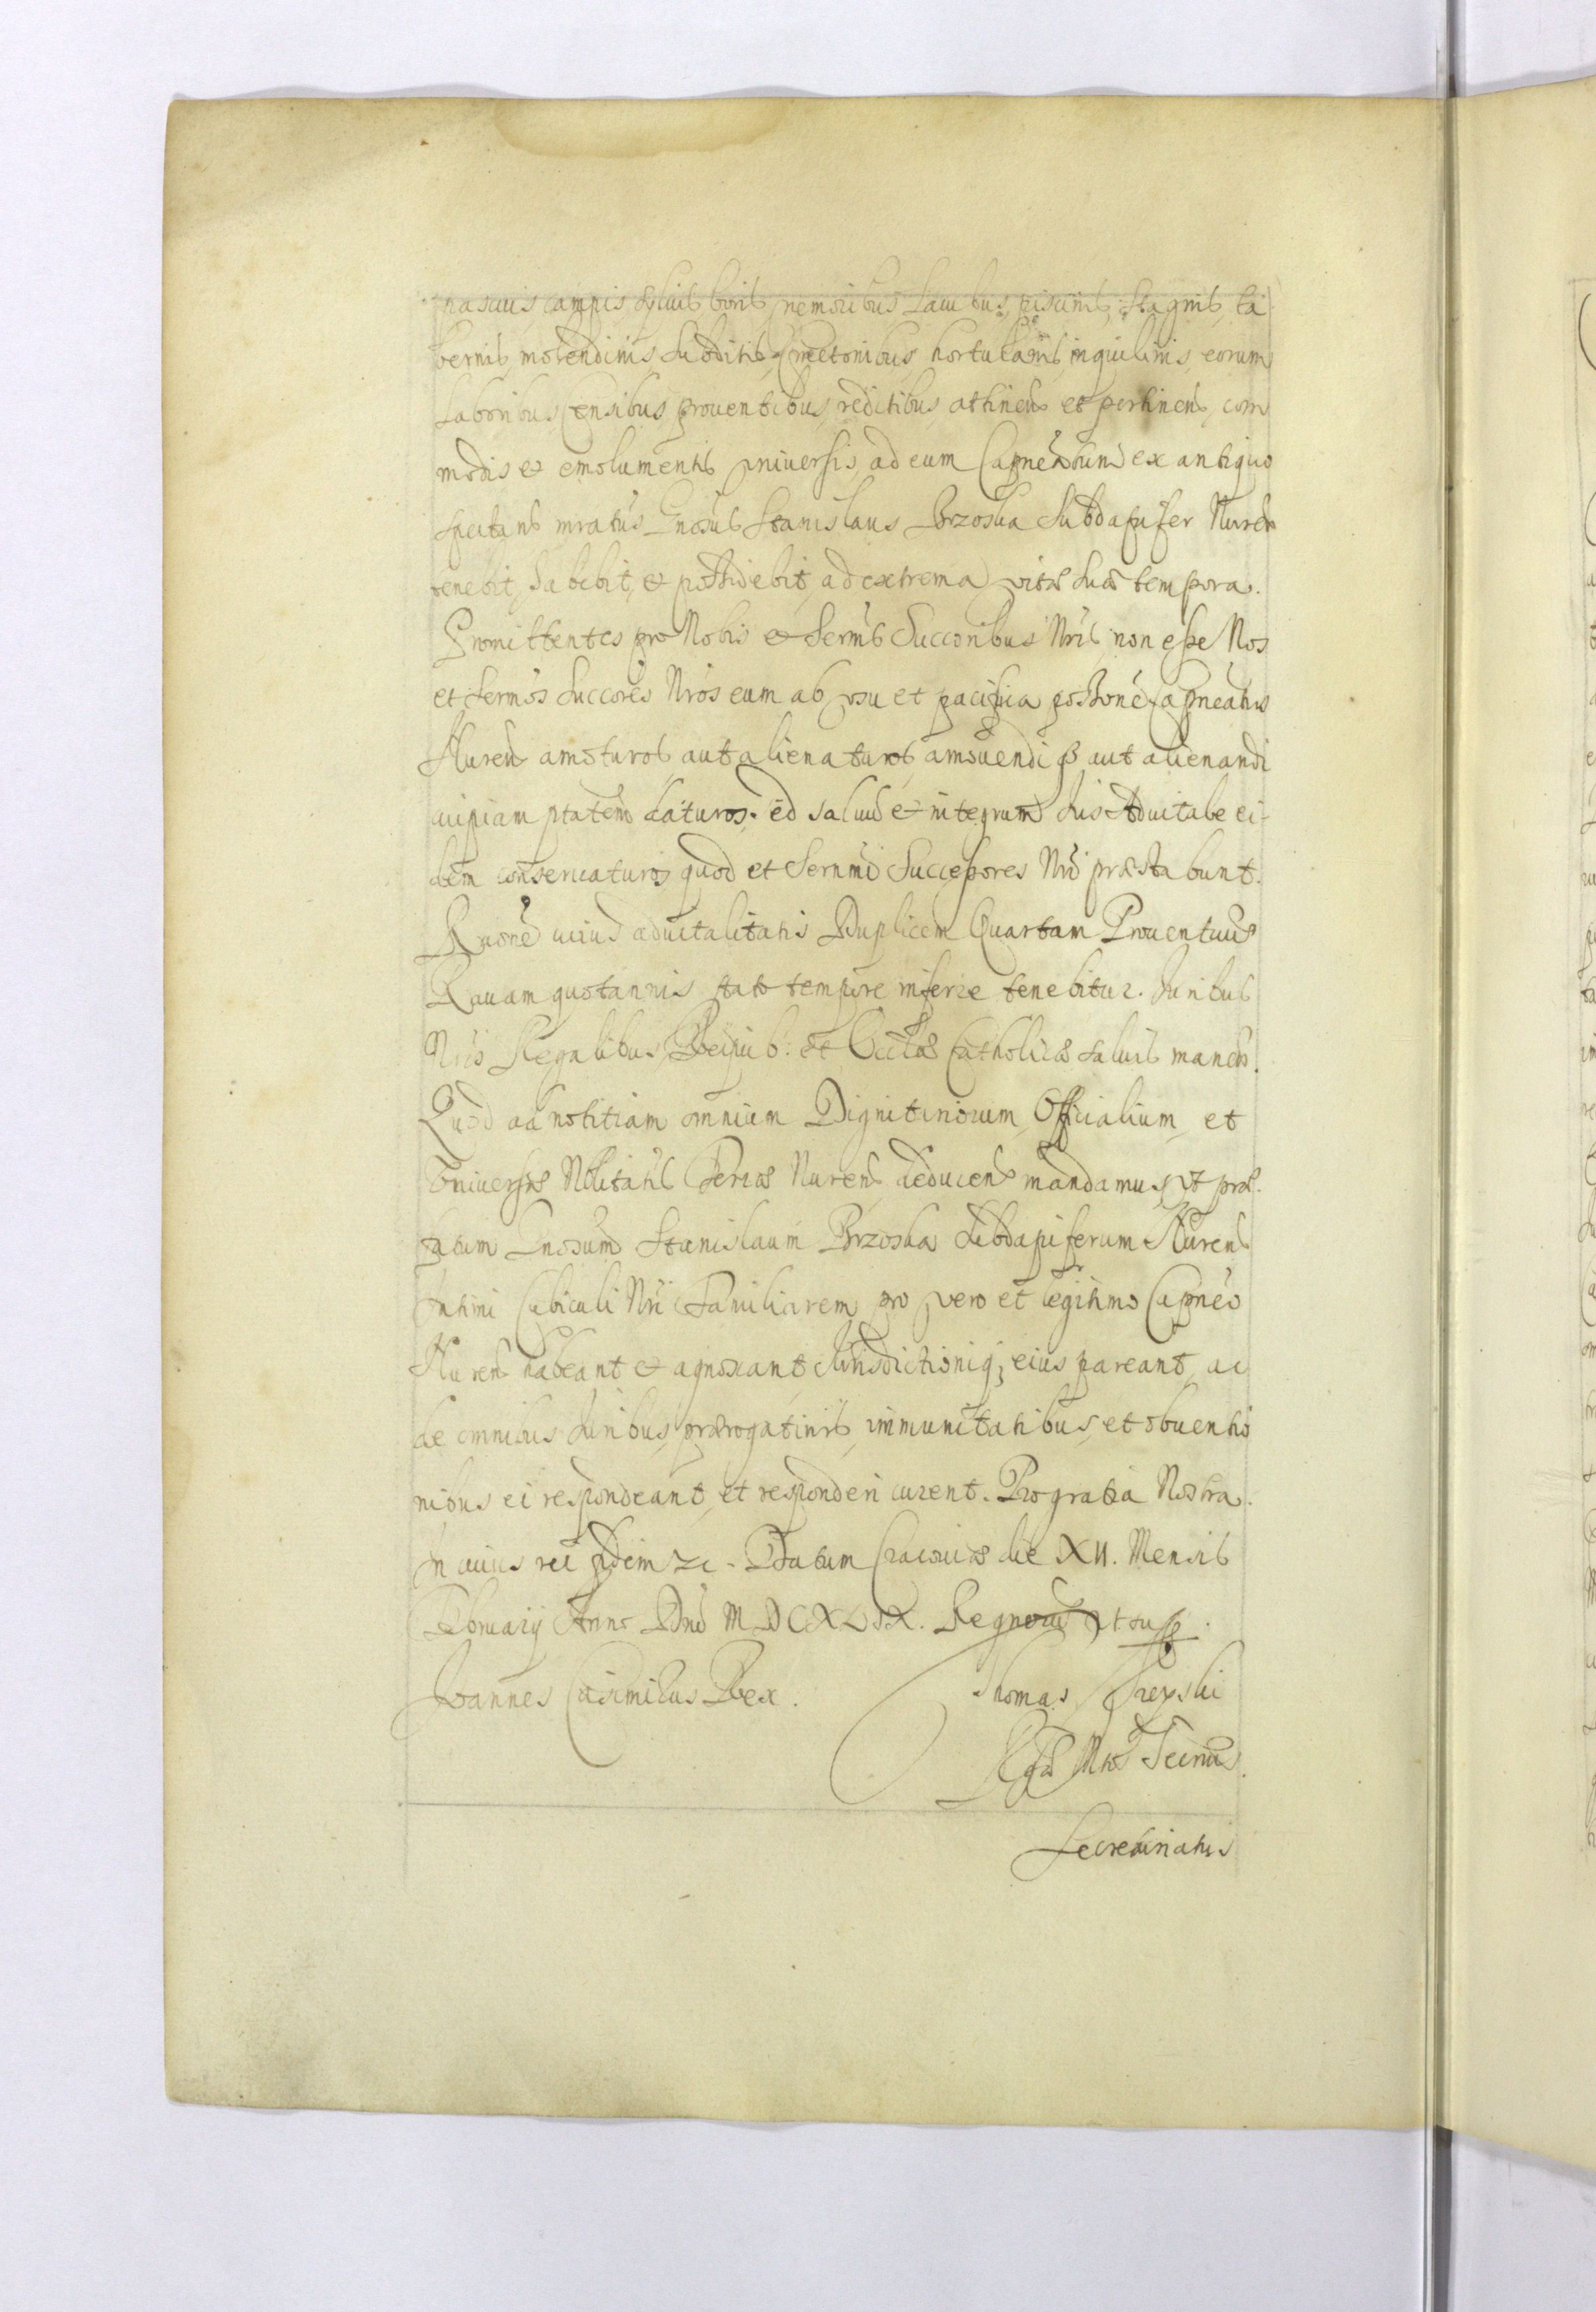 pascuis, campis, syluis, boris, nemoribus, lacubus, piscinis, stagnis, ta
bernis, molendinis, subditis, Cmetonibus, hortulanis, inquilinis, eorum
laboribus, Censibus, prouentibus, reditibus, attinen et pertinen, com
modis et emolumentis vniuersis, ad eum Capneatum ex antiquo
spectans mratus Gnosus Stanislaus Brzoska Subdapifer Nuren
tenebit, habebit, et possidebit, ad extrema vitæ suæ tempora.
Promittentes pro Nobis et Sermis Succoribus Nris, non esse Nos
et Sermos Succores Nros eum ab vsu et pacifica possione Capneatus
Nuren amoturos aut alienaturos, amouendi q3 aut alienandi
cuipiam ptatem daturos. sed saluum et integrum Ius Aduitale ei-
dem conseruaturos, quod et Sernmi Successores Nri præstabunt.
Raone cuius aduitalitatis Duplicem Quartam Prouentuum
Rauam quotannis stato tempore inferre tenebitur. Iuribus
Nris Regalibus, Reipub. et Ecclæ Catholicæ saluis manen.
Quod ad notitiam omnium Dignitariorum, Officialium, et
Vniuersæ Nobilitatis Terræ Nuren deducen mandamus, vt præ-
fatum Gnosum Stanislaum Brzoska Subdapiferum Nuren
Intimi Cubiculi Nri Familiarem pro vero et legitimo Capneo
Nuren habeant et agnoscant Iurisdictioniq; eius pareant, ac
de omnibus Iuribus, prærogatiuis, immunitatibus, et obuentio
nibus ei respondeant, et responderi curent. Pro gratia Nostra.
In cuius rei fidem etc. Datum Cracouiæ die XII. Mensis
February Anno Dni MDCXLIX. Regnorum vt supra.
Ioannes Casimirus Rex. Thomas Vieyski
Rgæ Mtis Secrius
Secretariatus